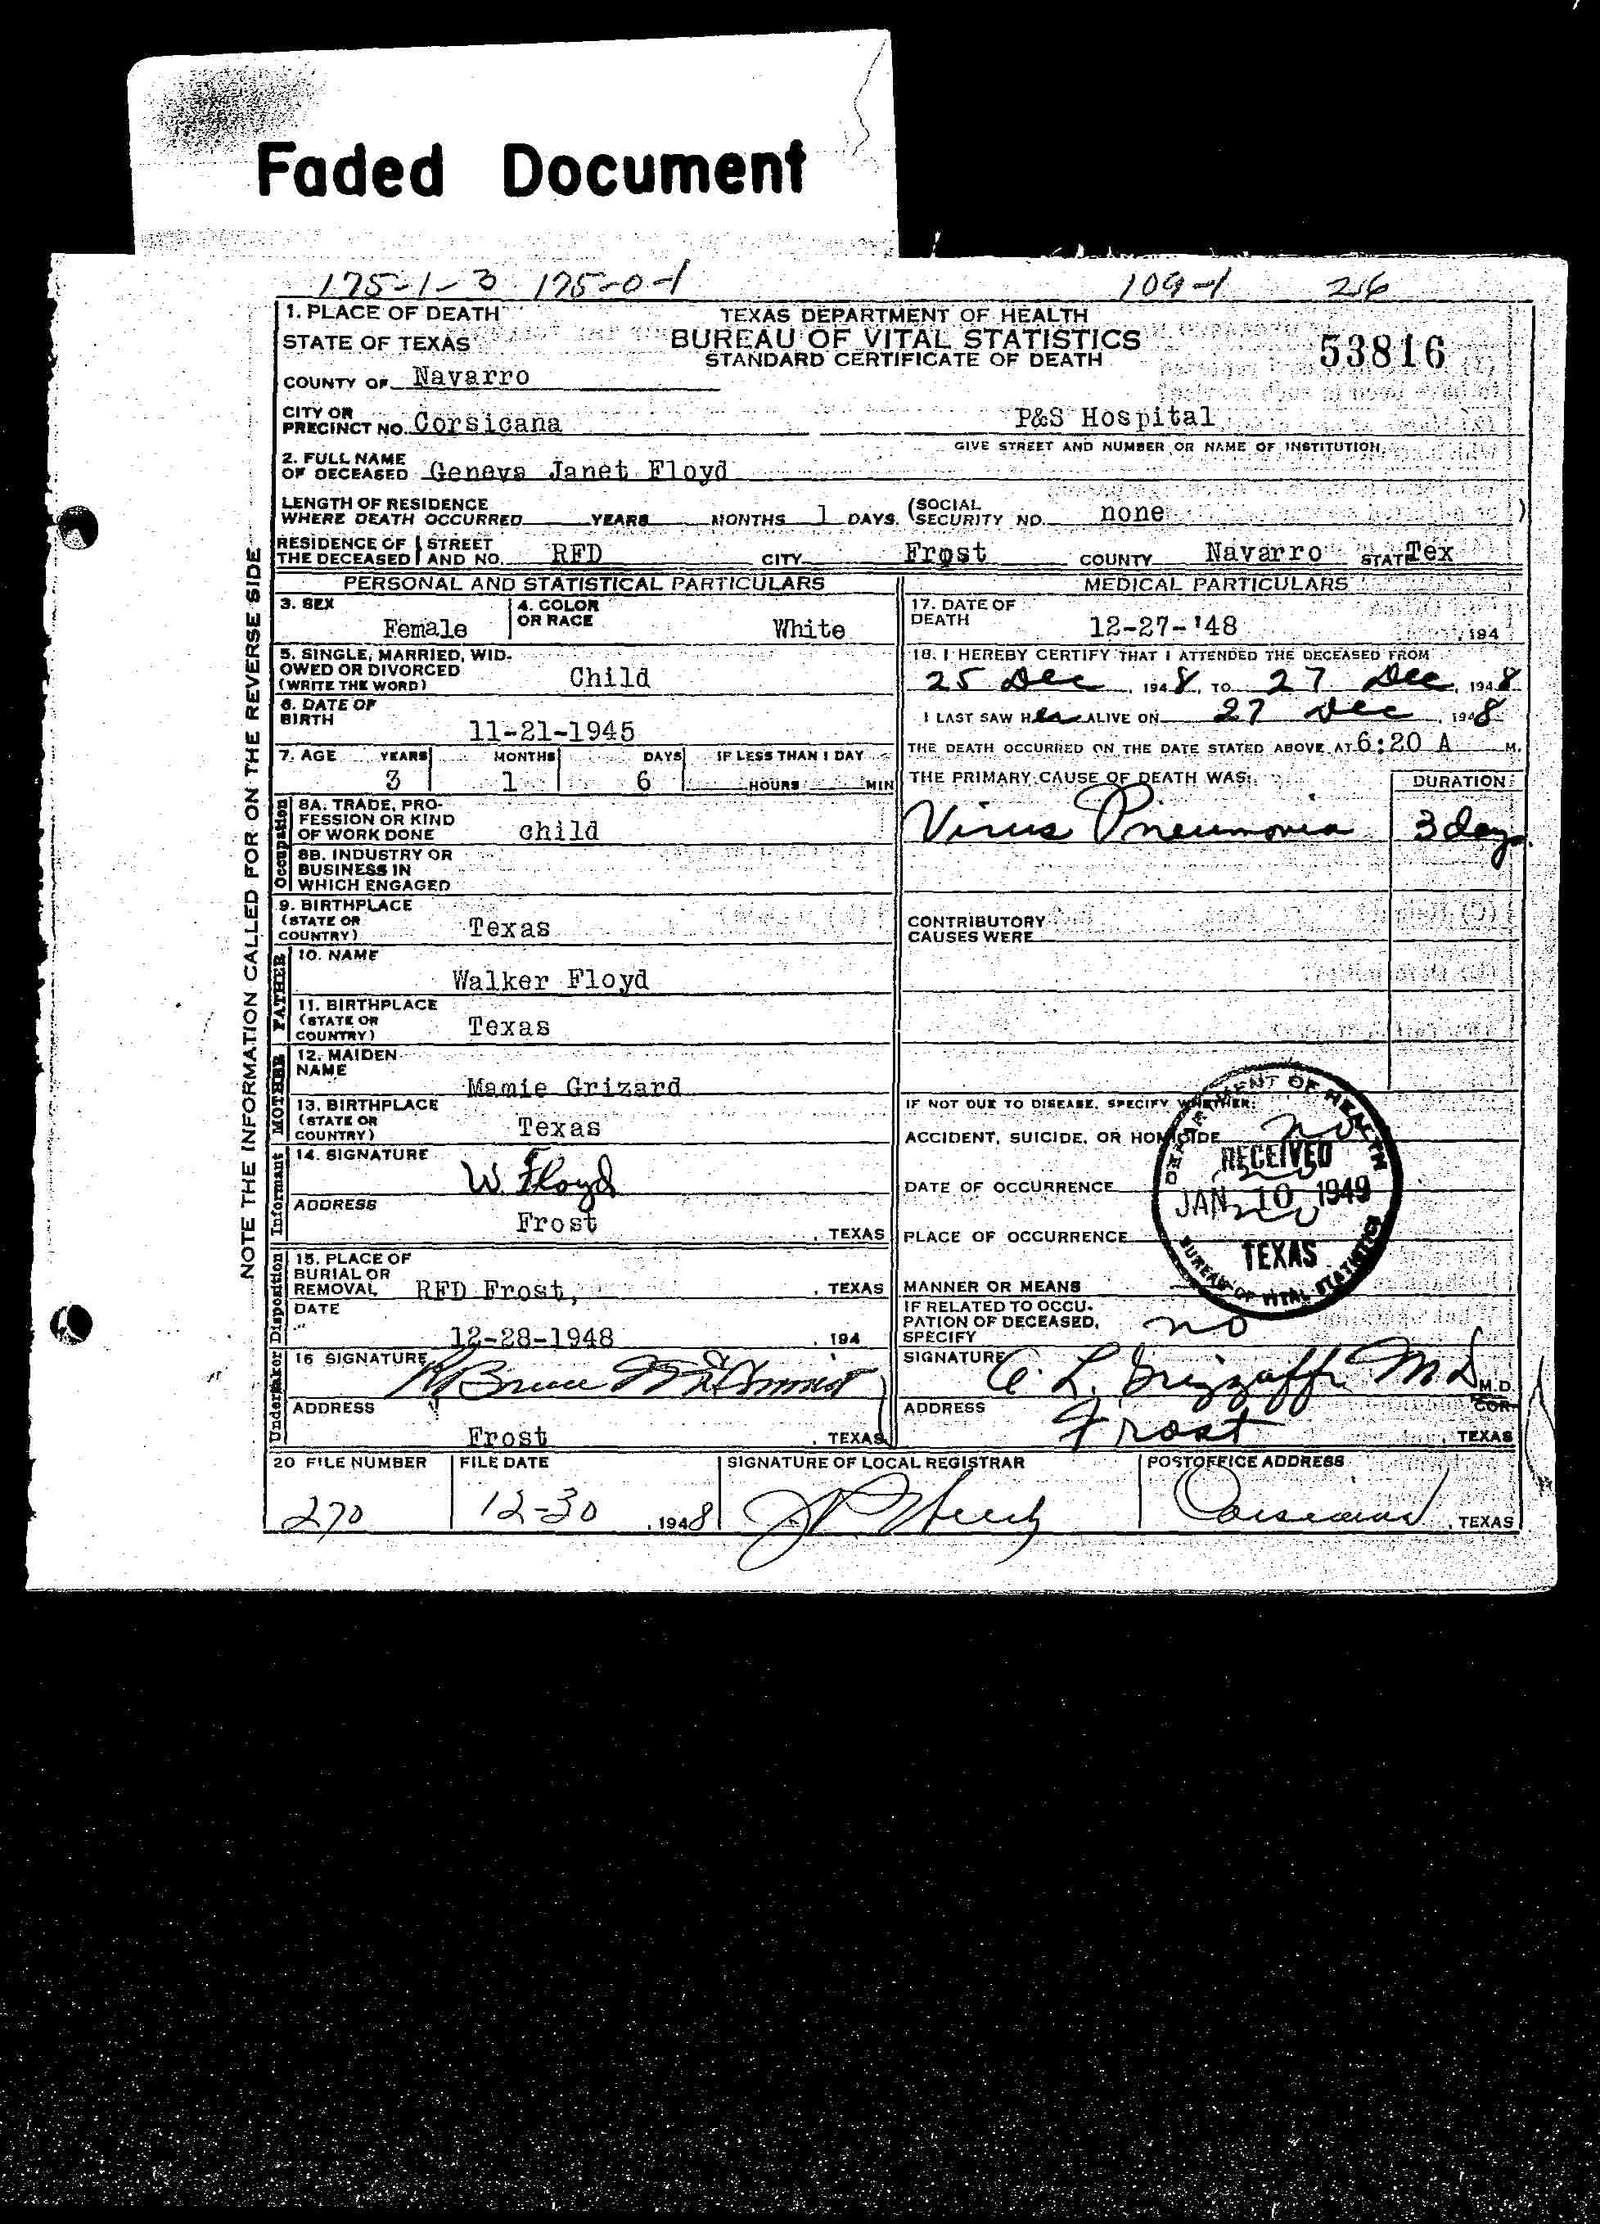 Faded Document
175-1-3 175-0-1 109-1 216
1. PLACE OF DEATH
STATE OF TEXAS
COUNTY OF Navarro
TEXAS DEPARTMENT OF HEALTH
BUREAU OF VITAL STATISTICS
STANDARD CERTIFICATE OF DEATH
53816
CITY OR
PRECINCT NO. Corsicana P&S Hospital
GIVE STREET AND NUMBER OR NAME OF INSTITUTION
2. FULL NAME
OF DECEASED Geneva Janet Floyd
LENGTH OF RESIDENCE
WHERE DEATH OCCURRED YEARS MONTHS 1 DAYS. (SOCIAL SECURITY NO. none )
RESIDENCE OF THE DECEASED STREET AND NO. RFD CITY Frost COUNTY Navarro STATE Tex
NOTE THE INFORMATION CALLED FOR ON THE REVERSE SIDE
PERSONAL AND STATISTICAL PARTICULARS
3. SEX Female
4. COLOR OR RACE White
5. SINGLE, MARRIED, WID-
OWED OR DIVORCED
(WRITE THE WORD) Child
6. DATE OF
BIRTH 11-21-1945
7. AGE YEARS MONTHS DAYS IF LESS THAN 1 DAY
3 1 6 HOURS MIN
Occupation
8A. TRADE, PRO-
FESSION OR KIND
OF WORK DONE child
8B. INDUSTRY OR
BUSINESS IN
WHICH ENGAGED
9. BIRTHPLACE
(STATE OR
COUNTRY) Texas
FATHER
10. NAME
Walker Floyd
11. BIRTHPLACE
(STATE OR
COUNTRY) Texas
MOTHER
12. MAIDEN
NAME
Mamie Grizard
13. BIRTHPLACE
(STATE OR
COUNTRY) Texas
Informant
14. SIGNATURE W. Floyd
ADDRESS
Frost , TEXAS
Disposition
15. PLACE OF
BURIAL OR
REMOVAL RFD Frost, , TEXAS
DATE
12-28-1948 , 194
Undertaker
16 SIGNATURE Bruce
ADDRESS
Frost , TEXAS
MEDICAL PARTICULARS
17. DATE OF
DEATH 12-27-'48 , 194
18. I HEREBY CERTIFY THAT I ATTENDED THE DECEASED FROM
25 Dec , 1948, TO 27 Dec , 1948
I LAST SAW Her ALIVE ON 27 Dec , 1948
THE DEATH OCCURRED ON THE DATE STATED ABOVE AT 6:20 A M.
THE PRIMARY CAUSE OF DEATH WAS: DURATION
Virus Pneumonia 3 days
CONTRIBUTORY
CAUSES WERE
IF NOT DUE TO DISEASE, SPECIFY WHETHER:
ACCIDENT, SUICIDE, OR HOMICIDE no
DATE OF OCCURRENCE no
PLACE OF OCCURRENCE no
MANNER OR MEANS
DEPARTMENT OF HEALTH
RECEIVED
JAN 10 1949
TEXAS
BUREAU OF VITAL STATISTICS
IF RELATED TO OCCU-
PATION OF DECEASED,
SPECIFY no
SIGNATURE C. L. Grizzaffi MD M.D.
COR.
ADDRESS Frost , TEXAS
20 FILE NUMBER FILE DATE SIGNATURE OF LOCAL REGISTRAR POSTOFFICE ADDRESS
270 12-30 , 1948 Corsicana , TEXAS